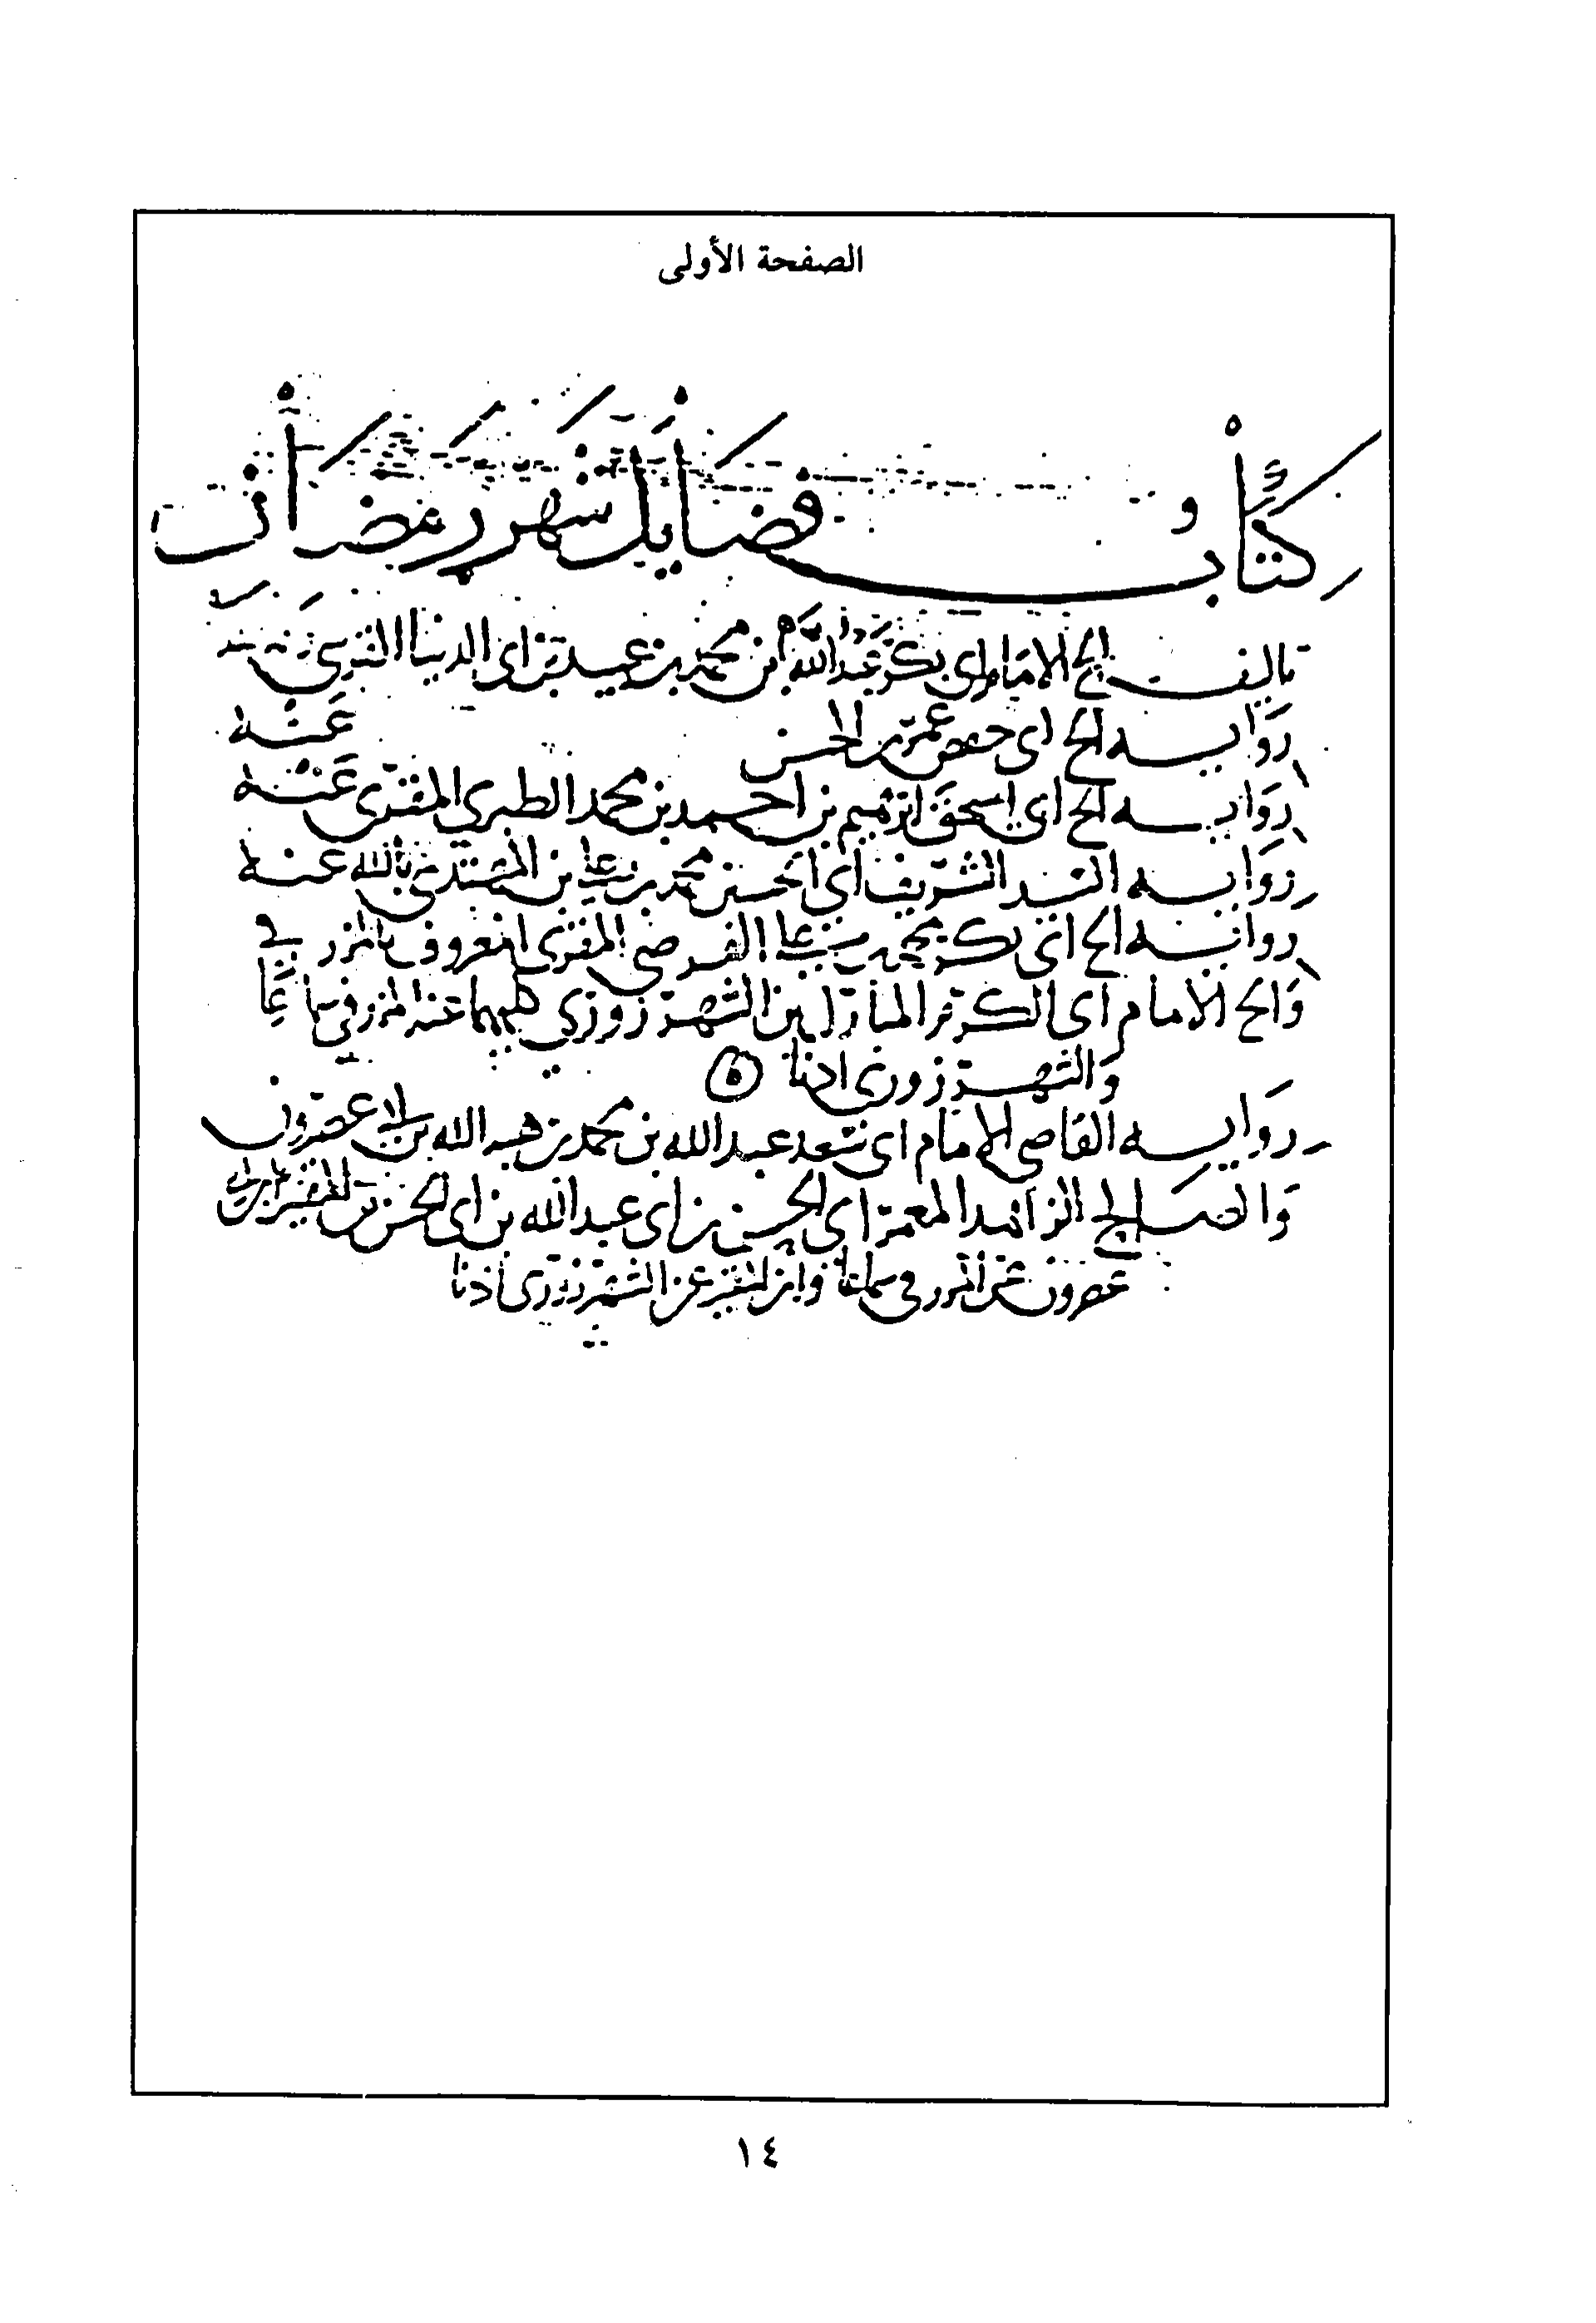 الصفحة الأولى
كِتَابُ فضَايل شهر رمَضَان
تاليف الشيخ الامام ابي بكر عبد الله بن محمد بن عبيد بن ابي الدنيا القرشي
رَوَايـــه الشيخ ابي حفص عمر بن الحسن عَنْه
رَوَايـــه الشيخ ابي اسحق ابرهيم بن احمد بن محمد الطبري المقرى عَنْه
روَايـــه السيد الشريف ابي الحسين محمد بن علي بن المهتدي بالله عنه
روايـــه الشيخ ابي بكر محمد بن علي الفرضي المقرى المعروف بالمزرفي
وَالشيخ الامام ابي الكرم المبارك بن الشهرزوري كليهما عنه المزرفي سماعًا
وَالشهرزوري اذنا ه
روَايـــه القاضي الامام ابي سعد عبد الله بن محمد بن هبة الله بن ابي عصرون
وَالصَالح الزاهد المعمر ابي الحسن بن ابي عبد الله بن ابي الحسن بن المقير
عصرون عن المزرفي سماعا وابن المقير عن الشهرزوري اذنا
١٤